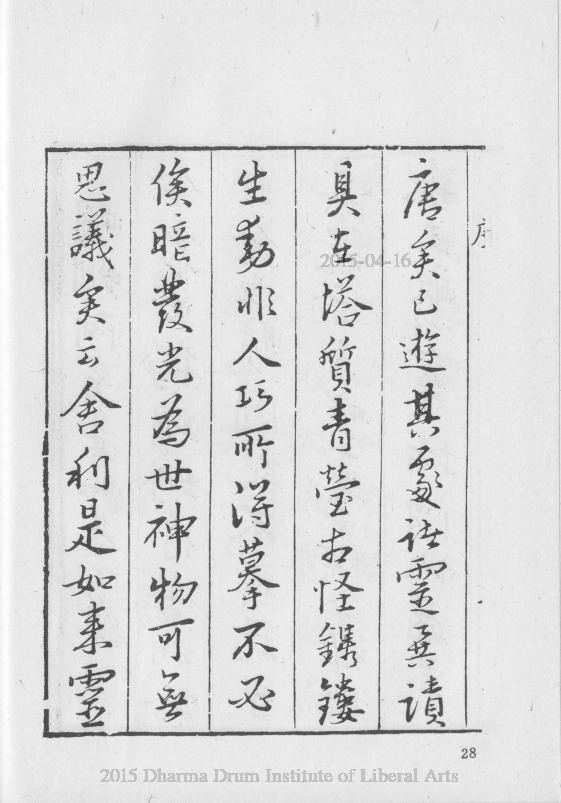 序
唐矣已遊其處諸靈異蹟
具在塔質青瑩古怪鐫鏤
生動非人巧所得摹不必
俟暗發光為世神物可無
思議矣云舍利是如來靈
2015-04-16
28
2015 Dharma Drum Institute of Liberal Arts